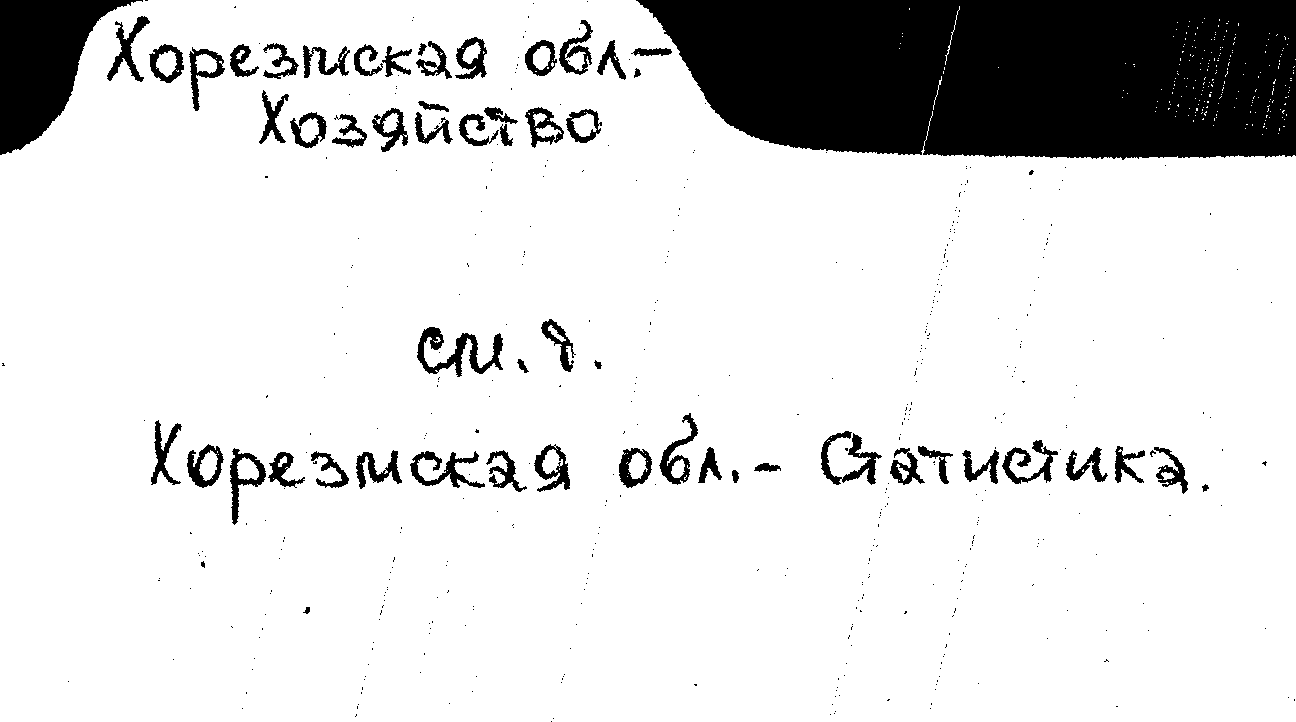 Хорезмская обл.-
Хозяйство
см. д.
Хорезмская обл.- Статистика.